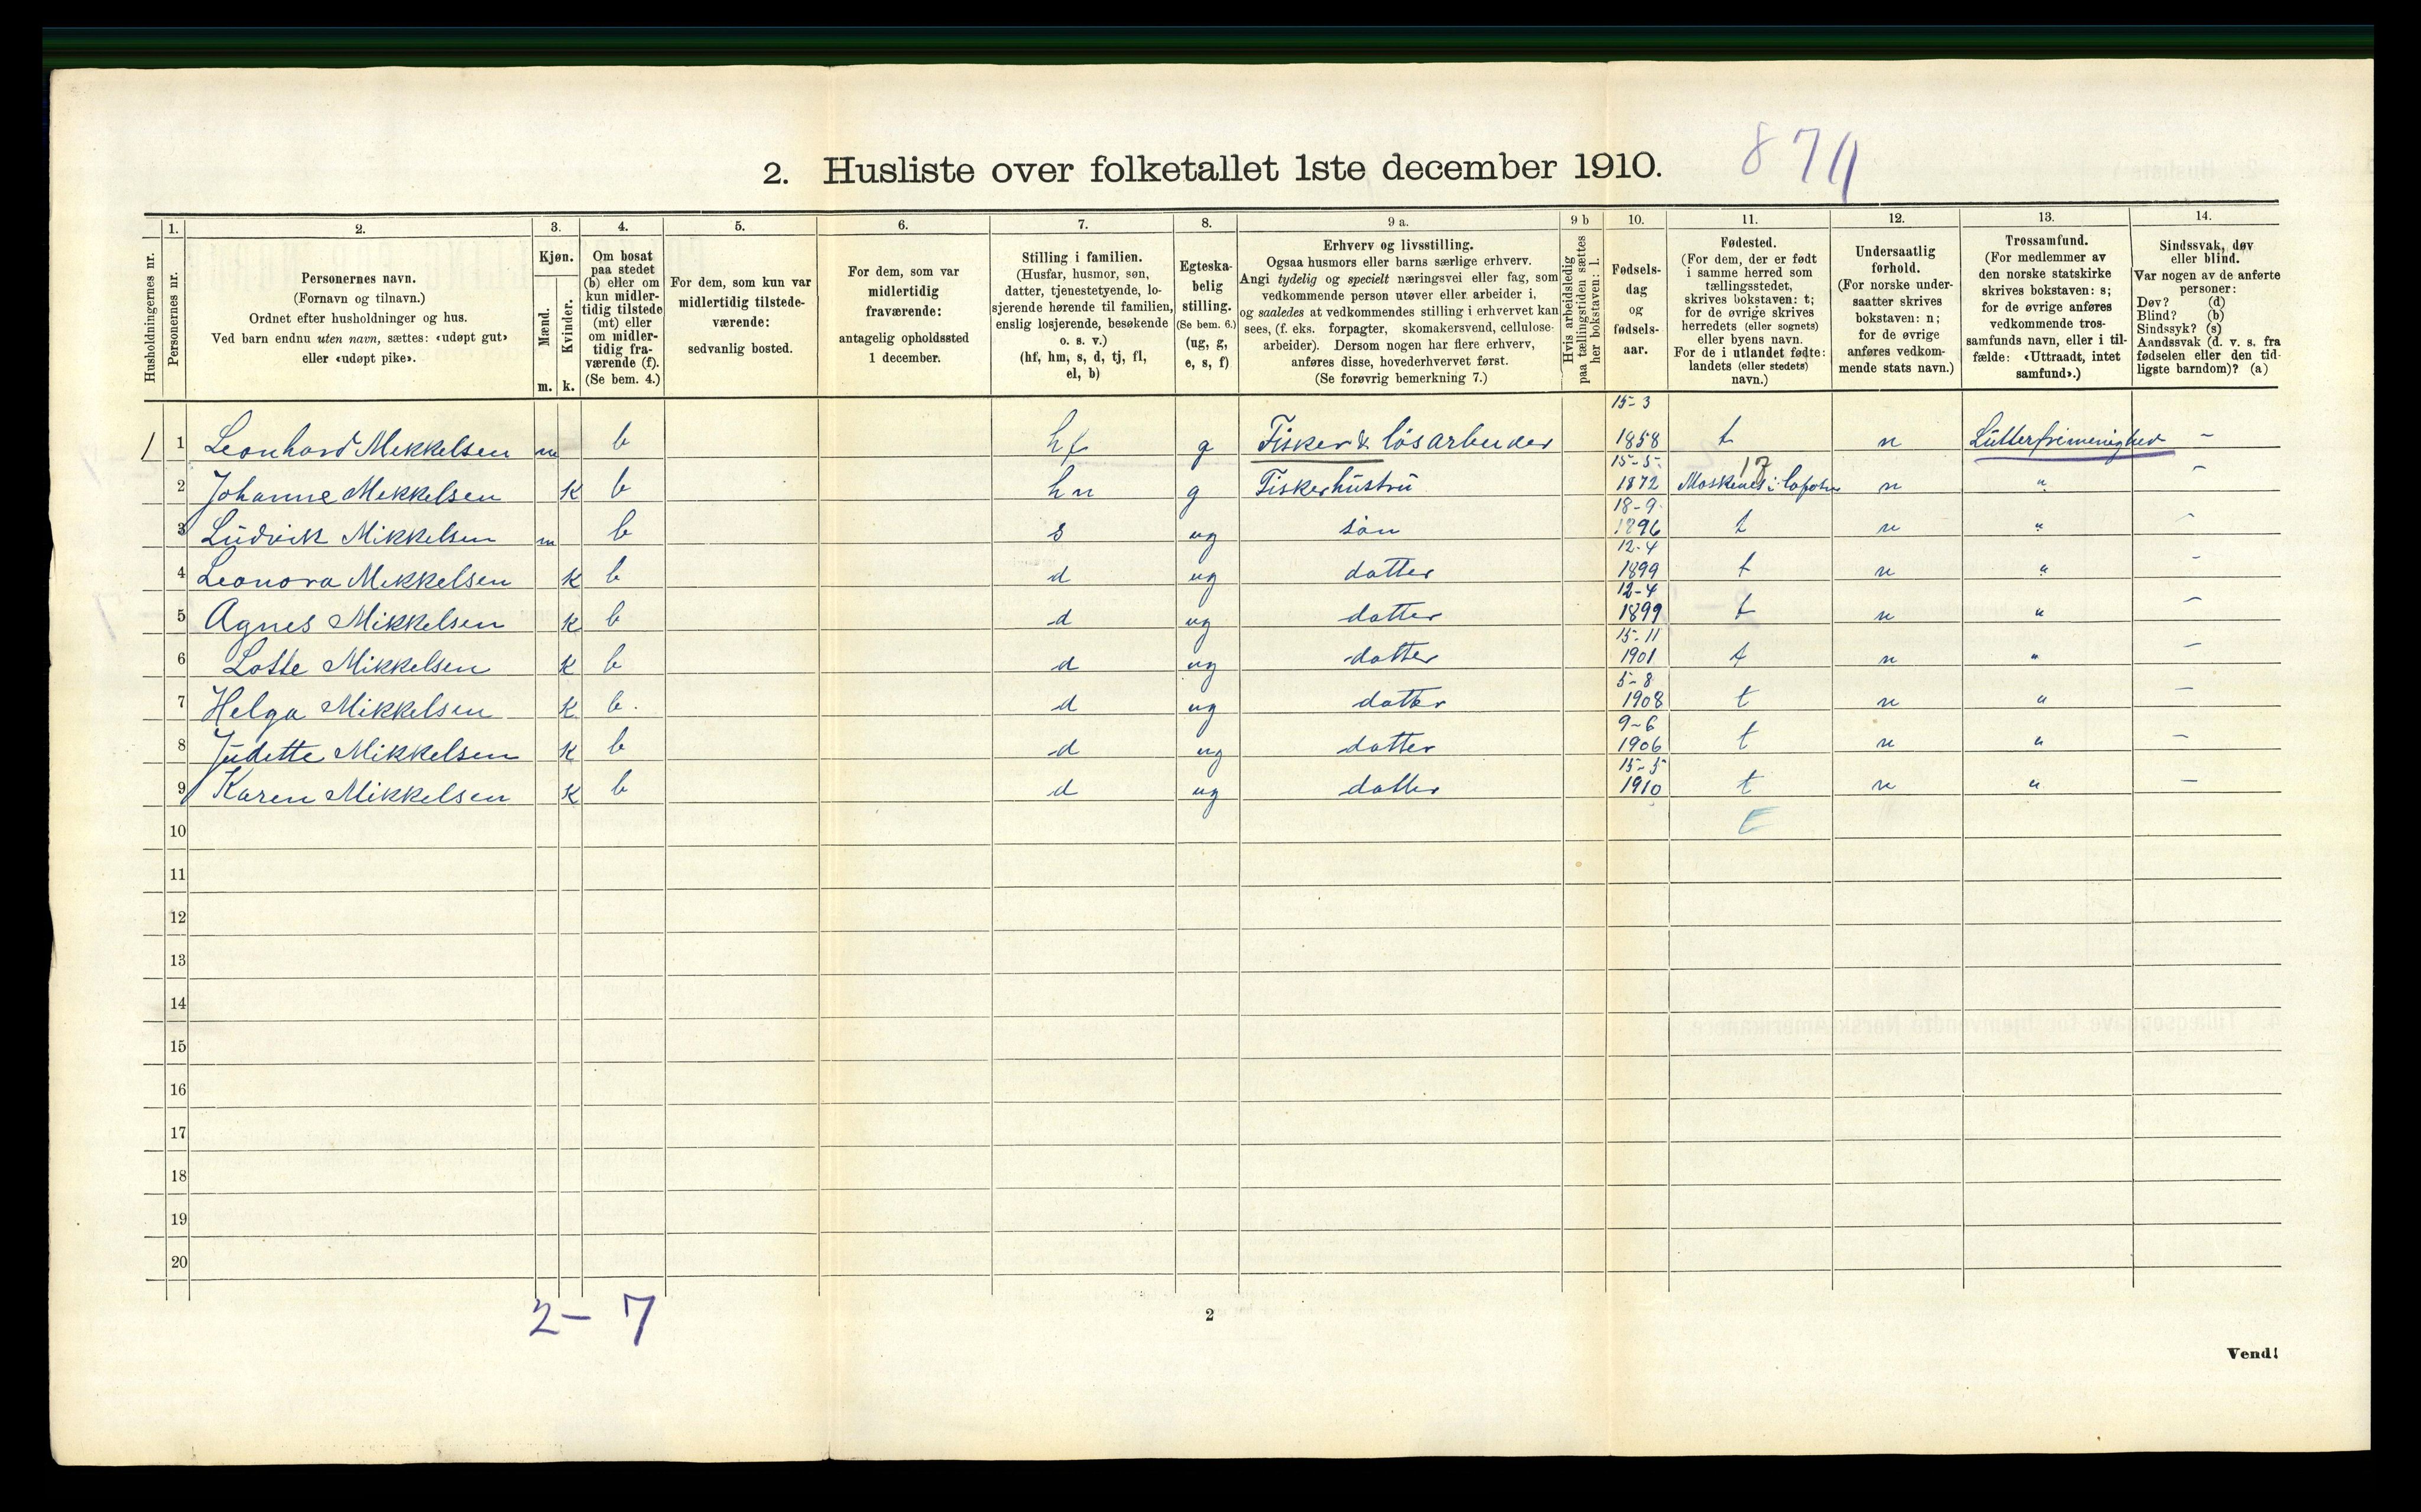 2. Husliste over folketallet 1ste december 1910. 874
1. 2. 3. 4. 5. 6. 7. 8. 9 a. 9 b 10. 11. 12. 13. 14.
Husholdningernes nr.
Personernes nr.
Personernes navn.
(Fornavn og tilnavn.)
Ordnet efter husholdninger og hus.
Ved barn endnu uten navn, sættes: «udøpt gut»
eller «udøpt pike».
Kjøn.
Mænd.
Kvinder.
m. k.
Om bosat
paa stedet
(b) eller om
kun midler-
tidig tilstede
(mt) eller
om midler-
tidig fra-
værende (f).
(Se bem. 4.)
For dem, som kun var
midlertidig tilstede-
værende:
sedvanlig bosted.
For dem, som var
midlertidig
fraværende:
antagelig opholdssted
1 december.
Stilling i familien.
(Husfar, husmor, søn,
datter, tjenestetyende, lo-
sjerende hørende til familien,
enslig losjerende, besøkende
o. s. v.)
(hf, hm, s, d, tj, fl,
el, b)
Egteska-
belig
stilling.
(Se bem. 6.)
(ug, g,
e, s, f)
Erhverv og livsstilling.
Ogsaa husmors eller barns særlige erhverv.
Angi tydelig og specielt næringsvei eller fag, som
vedkommende person utøver eller arbeider i,
og saaledes at vedkommendes stilling i erhvervet kan
sees, (f. eks. forpagter, skomakersvend, cellulose-
arbeider). Dersom nogen har flere erhverv,
anføres disse, hovederhvervet først.
(Se forøvrig bemerkning 7.)
Hvis arbeidsledig
paa tællingstiden sættes
her bokstaven: l.
Fødsels-
dag
og
fødsels-
aar.
Fødested.
(For dem, der er født
i samme herred som
tællingsstedet,
skrives bokstaven: t;
for de øvrige skrives
herredets (eller sognets)
eller byens navn.
For de i utlandet fødte:
landets (eller stedets)
navn.)
Undersaatlig
forhold.
(For norske under-
saatter skrives
bokstaven: n;
for de øvrige
anføres vedkom-
mende stats navn.)
Trossamfund.
(For medlemmer av
den norske statskirke
skrives bokstaven: s;
for de øvrige anføres
vedkommende tros-
samfunds navn, eller i til-
fælde: «Uttraadt, intet
samfund».)
Sindssvak, døv
eller blind.
Var nogen av de anførte
personer:
Døv? (d)
Blind? (b)
Sindssyk? (s)
Aandssvak (d. v. s. fra
fødselen eller den tid-
ligste barndom)? (a)
1 1 Leonhard Mekkelsen m b hf g Fisker & løsarbeider 15-3 1858 t n Lutterfrimenighed –
2 Johanne Mekkelsen k b hn g Fiskerhustru 15-5. 1872 Moskenes i Lofoten 17 n " –
3 Ludvik Mikkelsen m b s ug søn 18-9 1896 t n " –
4 Leonora Mekkelsen k b d ug datter 12-4 1899 t n " –
5 Agnes Mikkelsen k b d ug datter 12-4 1899 t n " –
6 Lotte Mikkelsen k b d ug datter 15-11 1901 t n " –
7 Helga Mikkelsen k b. d ug datter 5-8 1908 t n " –
8 Judette Mikkelsen k b d ug datter 9-6 1906 t n " –
9 Karen Mikkelsen k b d ug datter 15-5 1910 t n " –
10
11
12
13
14
15
16
17
18
19
20
2 – 7
2
Vend!